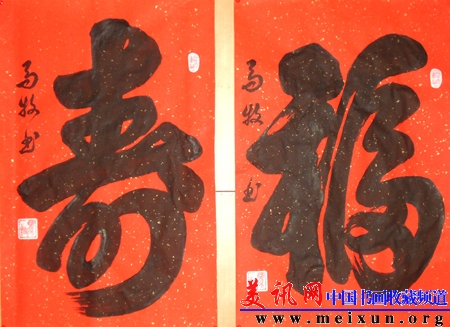 寿
马牧书
福
马牧书
美讯网 中国书画收藏频道
www.meixun.org